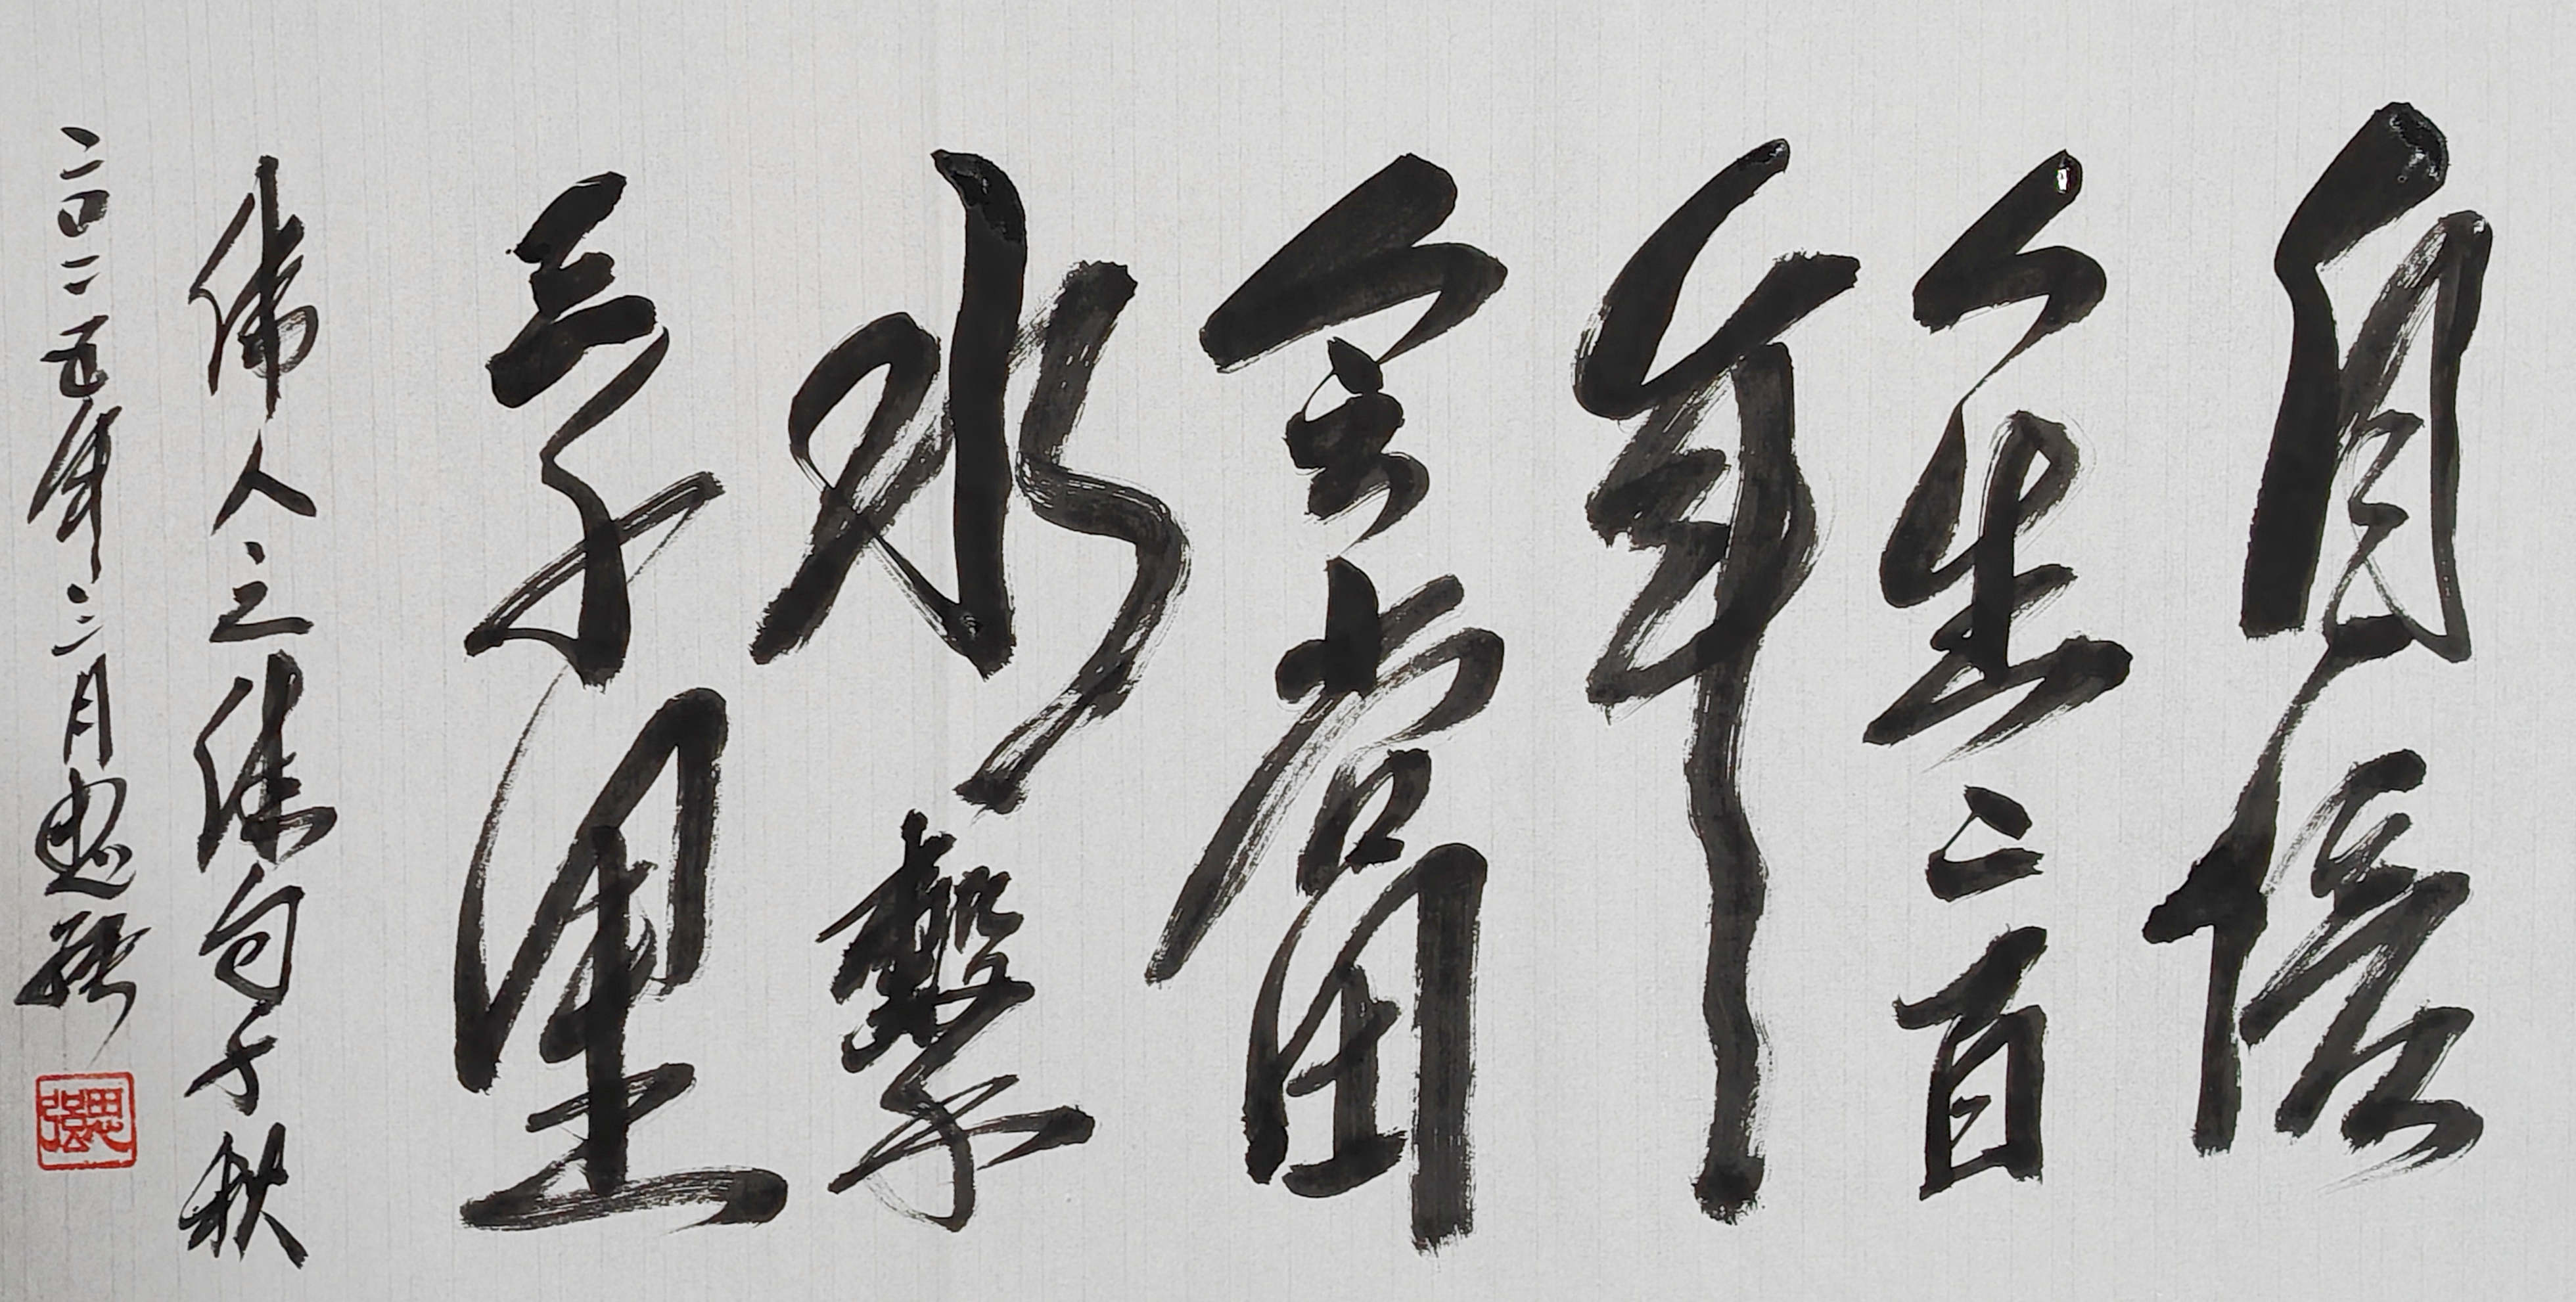 自信
人生二百
年
会当
水击
三千里
伟人之佳句
千秋
二〇二五年三月思强
思强